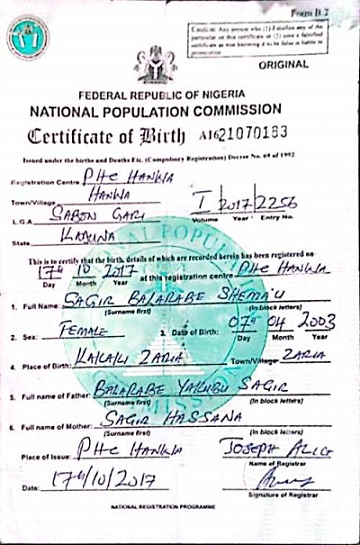 Form B.2
Caution: Any person who (1) Falsifies any of the
particular on this certificate or (2) uses a falsified
certificate as true knowing it to be false is liable to
prosecution
ORIGINAL
FEDERAL REPUBLIC OF NIGERIA
NATIONAL POPULATION COMMISSION
Certificate of Birth A1621070183
Issued under the births and Deaths Etc. (Compulsory Registration) Decree No. 69 of 1992
Registration Centre PHC HANWA
Town/Village HANWA
L.G.A SABON GARI
I 2017 2256
Volume Year Entry No.
State KADUNA
This is to certify that the birth, details of which are recorded herein has been registered on
17th 10 2017 at this registration centre PHC HANWA
Day Month Year
1. Full Name: SAGIR BALARABE SHEMA'U
(Surname first) (In block letters)
2. Sex: FEMALE 3. Date of Birth: 07th 04 2003
Day Month Year
4. Place of Birth: ZARIA Town/Village ZARIA
5. Full name of Father: BALARABE YAKUBU SAGIR
(Surname first) (In block letters)
6. Full name of Mother: SAGIR HASSANA
(Surname first) (In block letters)
Place of Issue: PHC HANWA JOSEPH ALICE
Name of Registrar
Date: 17th/10/2017
Signature of Registrar
NATIONAL REGISTRATION PROGRAMME